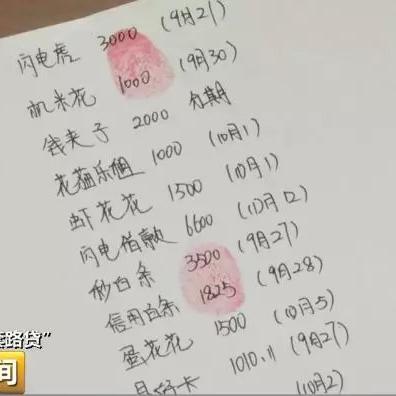 闪电虎 3000 (9月21)
机米花 1000 (9月30)
钱夹子 2000 分期
花猫乐租 1000 (10月1)
虾花花 1500 (10月1)
闪电借款 6600 (10月12)
秒白条 3500 (9月27)
信用白条 1825 (9月28)
蛋花花 1500 (10月5)
卡 1010.11 (9月27)
(10月2)
路贷”
间